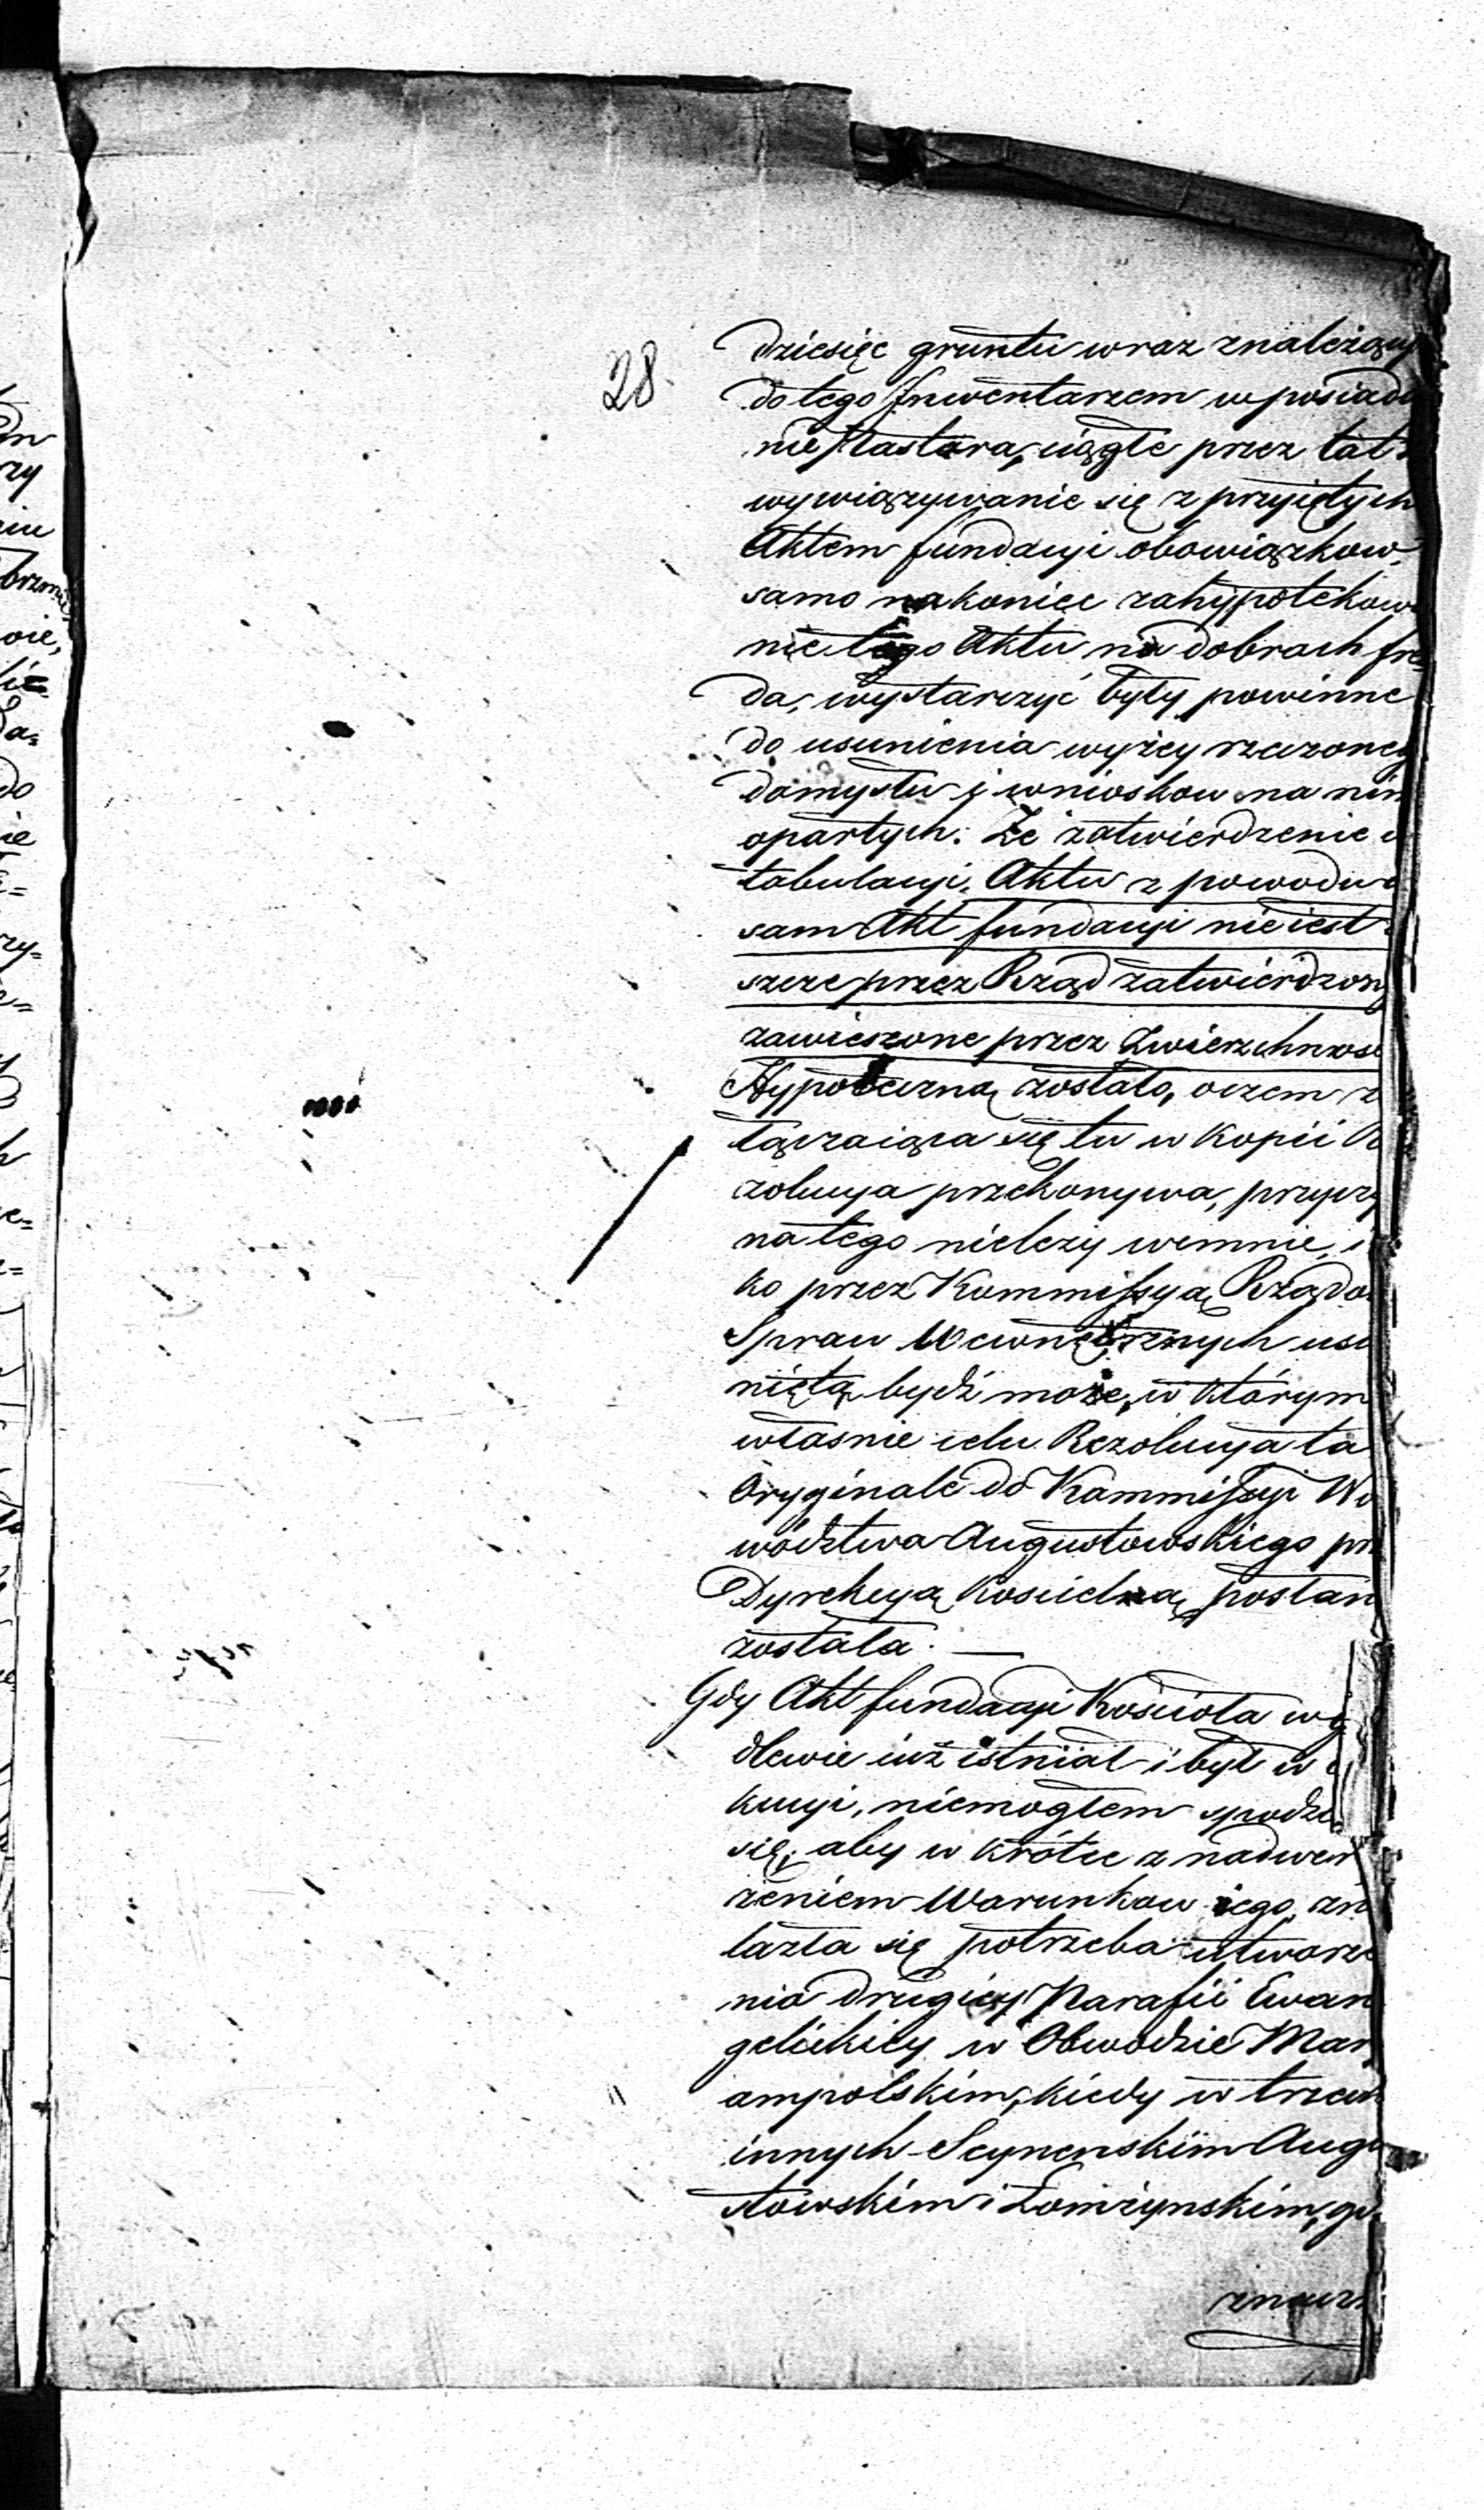 28
dziesięc gruntu wraz znależący
do tego Jnwentarzem w posiada
nie Pastora, ciągłe przez lat
wywiązywanie się z przyiętych
Aktem fundacyi obowiązkow,
samo nakoniec zahypotekowa
nie tego Aktu na dobrach Fre
da, wystarczyć były powinne
do usunienia wyżey rzeczoneg
domysłu i wniosków na nim
opartych. Że zatwierdzenie
tabulacyi Aktu z powodu
sam Akt fundacyi nie iest
szcze przez Rząd zatwierdzony
zawieszone przez Zwierzchnosc
Hypoteczną zostało, oczem z
łączaiąca się tu w Kopii R
zolucya przekonywa, przyczy
na tego nieleży wemnie, i
ko przez Kommissyą Rządo
Spraw Wewnętrznych usu
niętą bydź może, w którym
własnie celu Rezolucya ta
Oryginale do Kommissyi Wo
wództwa Augustowskiego prz
Dyrekcyą Koscielną postan
została. —
Gdy Akt fundacyi Kościoła w G
dlewie iuż istniał i był w
kucyi, niemogłem spodzie
się, aby w krótce z nadwer
żeniem Warunkow iego, zna
lazła się potrzeba utworze
nia drugiey Parafii Ewan
gelickiey w Obwodzie Mary
ampolskim, kiedy w trzech
innych Seynenskim Augu
stowskim i Łomżynskim, g
znaczn